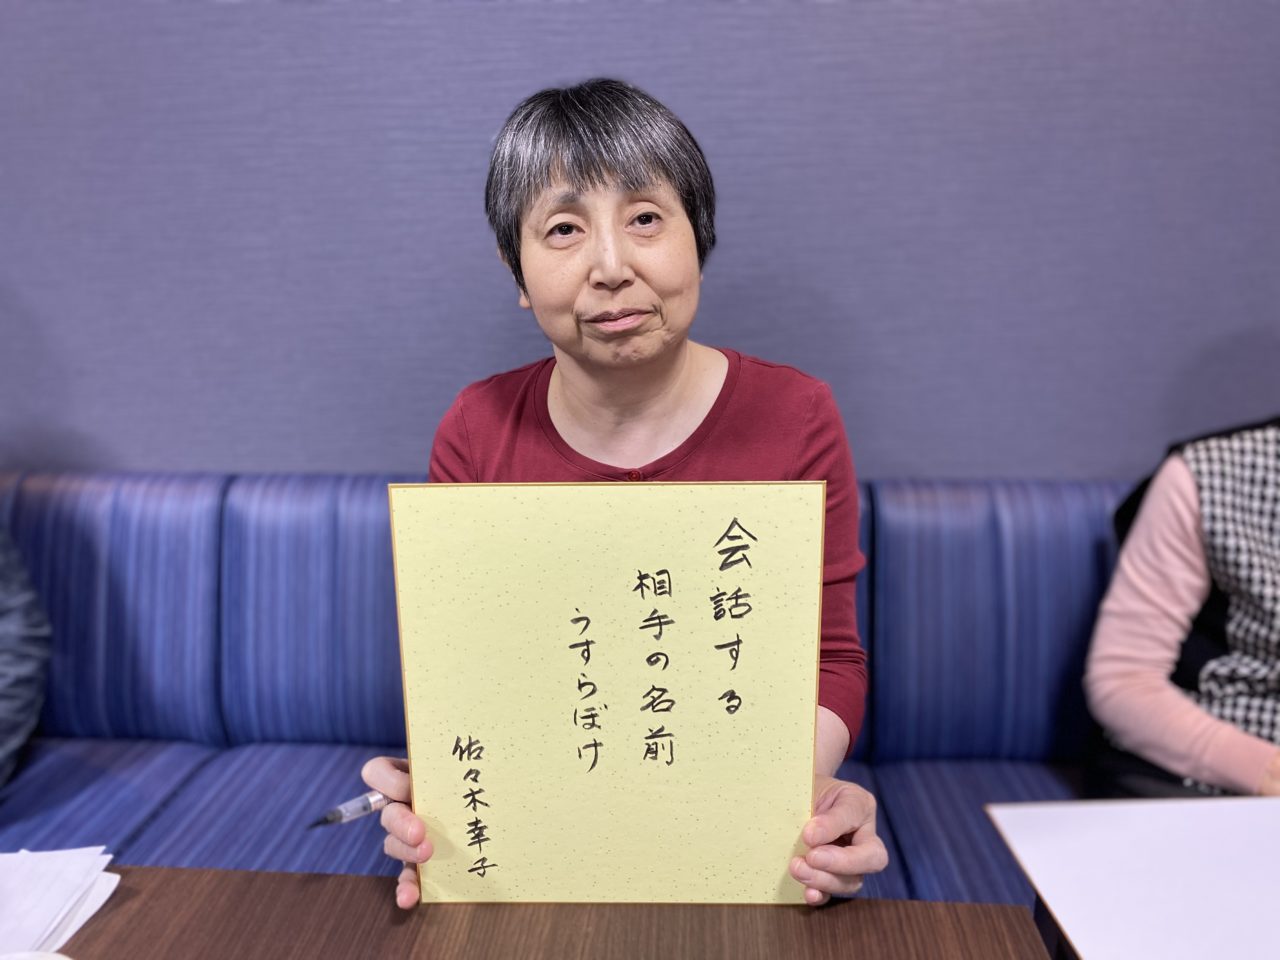 会話する
相手の名前
うすらぼけ
佐々木幸子